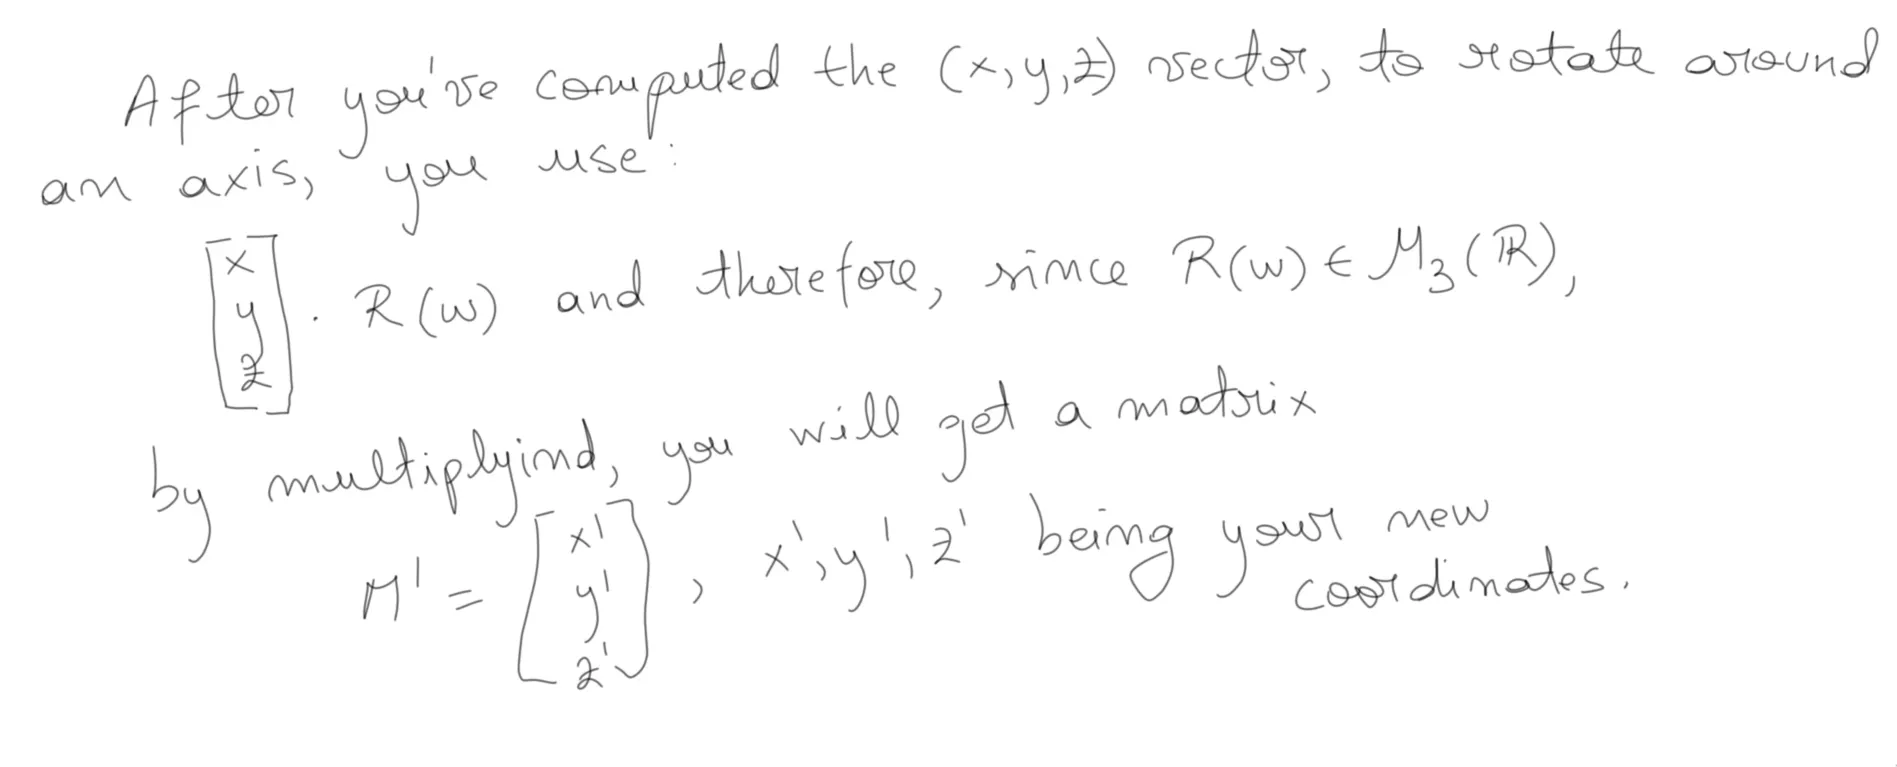 After you've computed the (x,y,z) vector, to rotate around
an axis, you use:
[x y z] . R(w) and therefore, since R(w) ∈ M₃(ℝ),
by multiplyind, you will get a matrix
M' = [x' y' z'], x', y', z' being your new
coordinates.